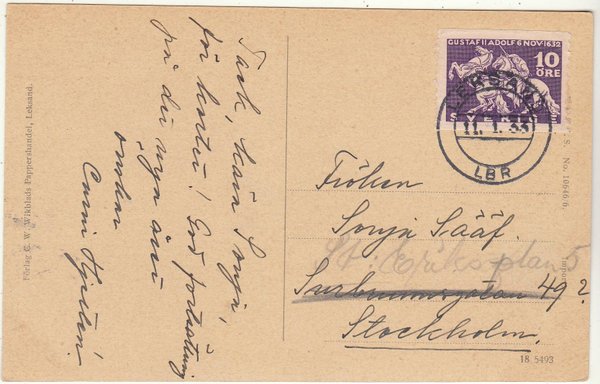 Tack, kära Sonja,
för korten! God fortsättning
på det nya året
önskar
Förlag G. W. Wikblads Pappershandel, Leksand.
GUSTAF II ADOLF 6 NOV. 1632
10
ÖRE
SVERIGE
LEKSAND
11. 1. 33
LBR
Fröken
Sonja Sääf.
St. Eriksplan 5
49 ?
Stockholm.
No. 10646 b.
18 5493